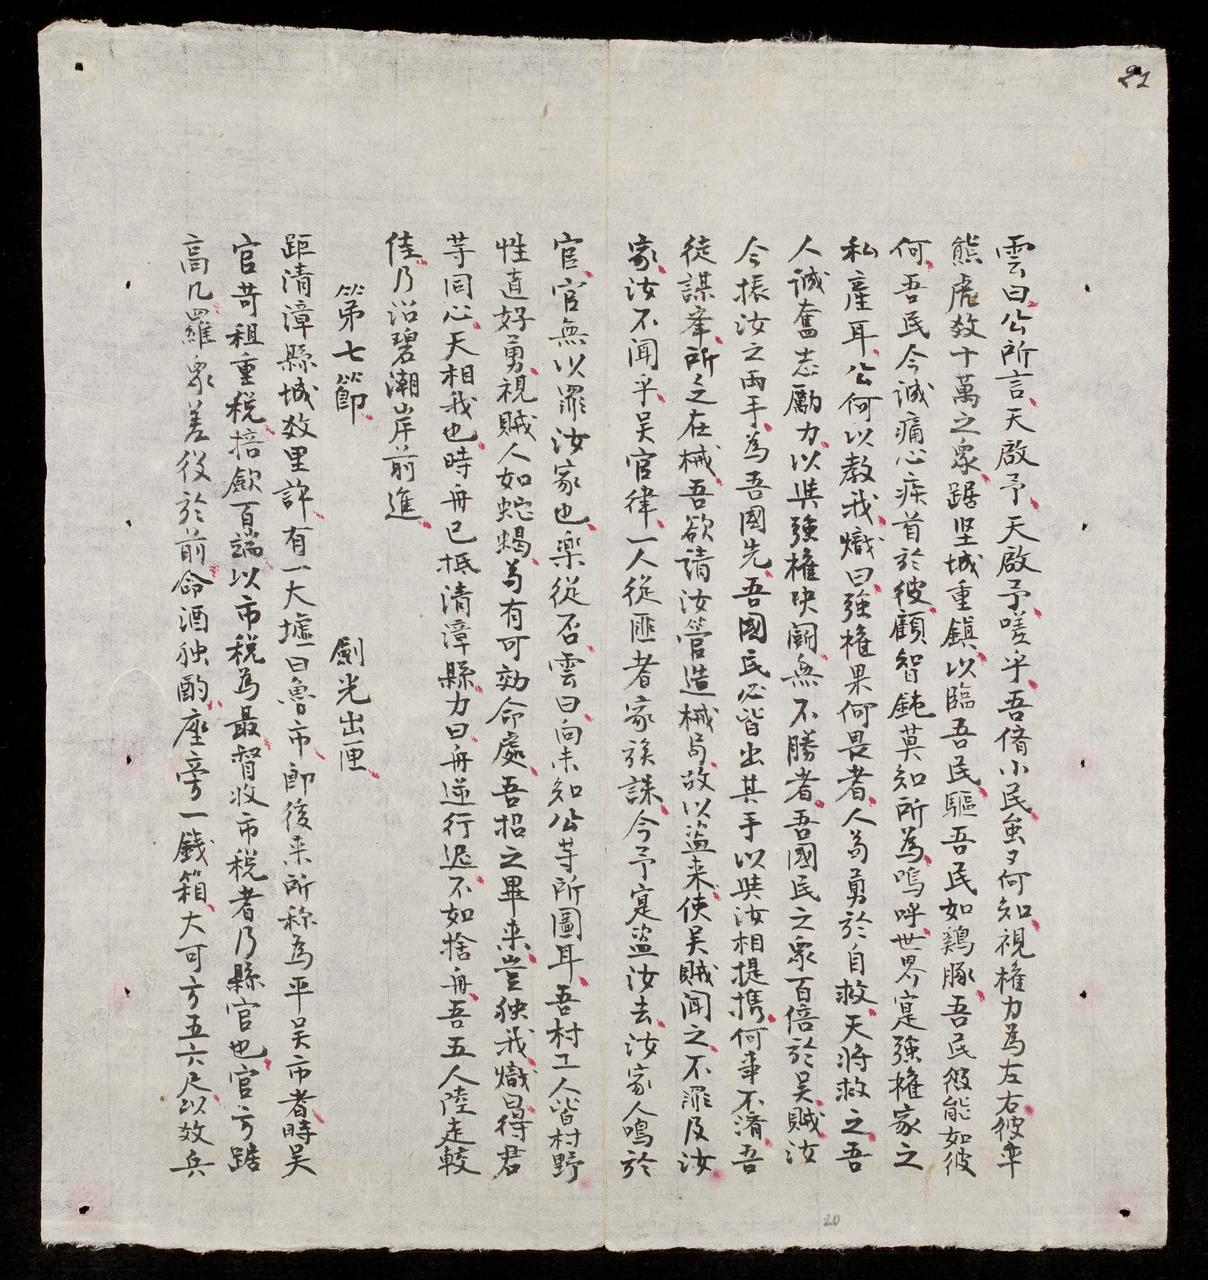 21
雲曰公所言天啟予天啟予嗟乎吾儕小民蚩々何知視權力為左右彼率
熊虎数十萬之眾踞堅城重鎮以臨吾民驅吾民如鷄豚吾民復能如彼
何吾民今誠痛心疾首於彼顧智鈍莫知所為嗚呼世界寔強權家之
私產耳公何以教我熾曰強權果何畏者人苟勇於自救天將救之吾
人誠奮志勵力以與強權決鬭無不勝者吾國民之眾百倍於吴賊汝
今振汝之両手為吾國先吾國民必皆出其手以與汝相提携何事不濟吾
徒謀峯所乏在械吾欲請汝管造械局故以盜来使吴賊聞之不罪及汝
家汝不聞乎吴官律一人從匪者家族誅今予寔盜汝去汝家人鳴於
官官無以罪汝家也樂從否雲曰向未知公等所圖耳吾村工人皆村野
性直好勇視賊人如蛇蝎苟有可効命處吾招之畢来豈独我熾曰得君
等同心天相我也時舟已抵清漳縣力曰舟逆行迟不如捨舟吾五人陸走較
佳乃沿碧潮岸前進
第七節 劍光出匣
距清漳縣城数里許有一大墟曰魯市即後来所称為平吴市者時吴
官苛租重税掊歛百端以市税為最督收市税者乃縣官也官方踞
高几羅眾差役於前命酒独酌座旁一錢箱大可方五六尺以数兵
20